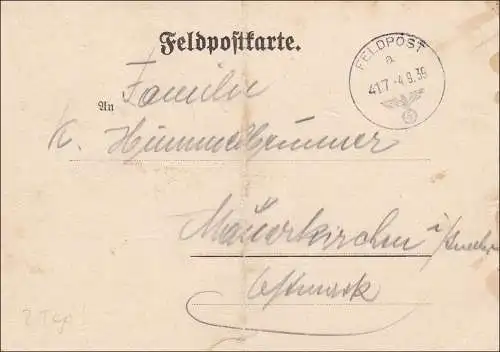 Feldpostkarte.
FELDPOST
a
417 -4.9.39
An Familie
K. Himmelbrunner
Mauerkirchen
Ostmark
2 Tage